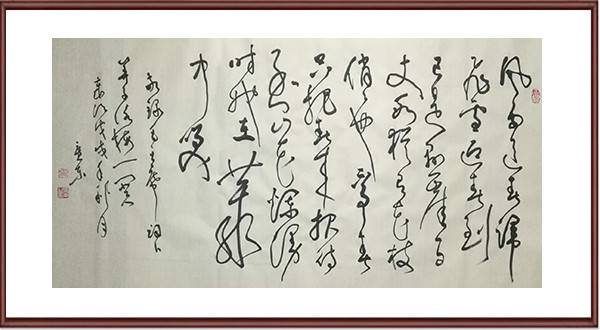 风雨送春归
飞雪迎春到
已是悬崖百
丈冰犹有花枝
俏俏也不争春
只把春来报待
到山花烂漫
时她在丛
中笑
敬录毛主席词卜
算子咏梅一首
岁次戊戌年秋月